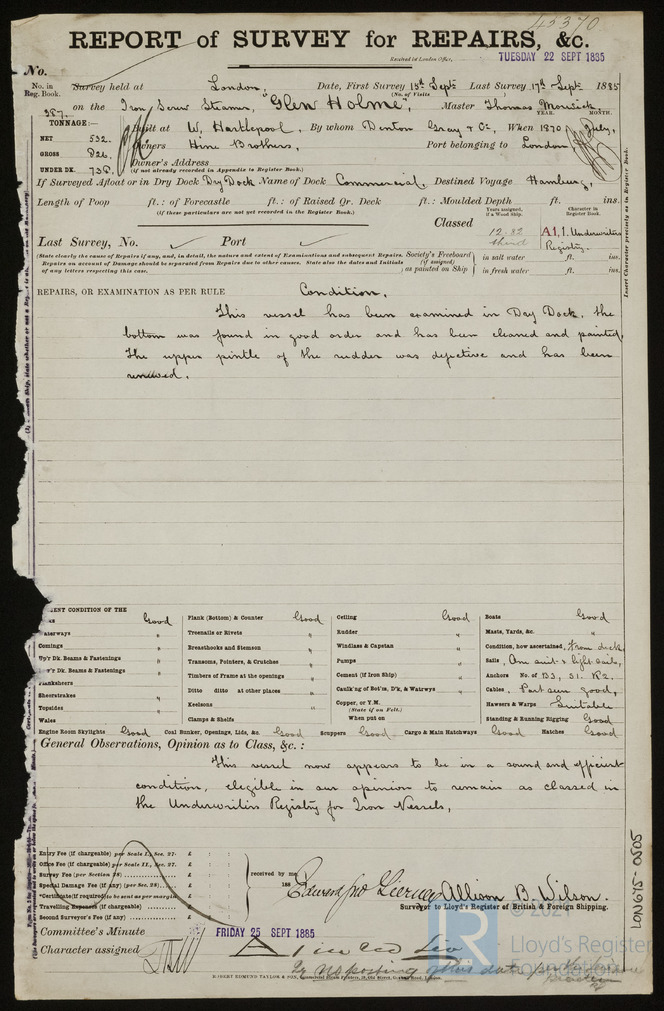 45370
REPORT of SURVEY for REPAIRS, &c.
Received at London Office, TUESDAY 22 SEPT 1885
No.
No. in Reg. Book. Survey held at London, Date, First Survey 15th Sept Last Survey 17th Sept 1885
(No. of Visits)
387. on the Iron Screw Steamer, "Glen Holme", Master Thomas
TONNAGE:— Built at W. Hartlepool, By whom Denton Gray & Co, When 1870 July,
YEAR. MONTH.
NET 532.
GROSS 826. Owners Hine Brothers, Port belonging to London
UNDER DK. 738. Owner's Address
(if not already recorded in Appendix to Register Book.)
If Surveyed Afloat or in Dry Dock Dry Dock Name of Dock Commercial. Destined Voyage Hamburg,
Length of Poop ft.: of Forecastle ft.: of Raised Qr. Deck ft.: Moulded Depth ft. ins.
(if these particulars are not yet recorded in the Register Book.)
Years assigned, if a Wood Ship. Character in Register Book.
Classed 12.82 third A1.1. Underwriters Registry.
Last Survey, No. Port
(State clearly the cause of Repairs if any, and, in detail, the nature and extent of Examinations and subsequent Repairs.
Repairs on account of Damage should be separated from Repairs due to other causes. State also the dates and Initials
of any letters respecting this case.)
Society's Freeboard (if assigned) as painted on Ship in salt water ft. ins.
in fresh water ft. ins.
Insert Character precisely as in Register Book.
REPAIRS, OR EXAMINATION AS PER RULE Condition.
This vessel has been examined in Dry Dock, the
bottom was found in good order and has been cleaned and painted.
The upper pintle of the rudder was defective and has been
renewed.
ENT CONDITION OF THE
Good Plank (Bottom) & Counter Good Ceiling Good Boats Good
aterways " Treenails or Rivets " Rudder " Masts, Yards, &c. "
Comings " Breasthooks and Stemson " Windlass & Capstan " Condition, how ascertained, From deck
Up'r Dk. Beams & Fastenings " Transoms, Pointers, & Crutches " Pumps " Sails, One suit & light sails,
w'r Dk. Beams & Fastenings " Timbers of Frame at the openings " Cement (if Iron Ship) " Anchors No. of B3, S1. K2.
Planksheers Ditto ditto at other places " Caulk'ng of Bot'm, D'k, & Waterways " Cables, Part seen good,
Sheerstrakes " Keelsons " Copper, or Y.M. Hawsers & Warps Suitable
Topsides " (State if on Felt.)
Wales Clamps & Shelfs When put on Standing & Running Rigging Good
Engine Room Skylights Good Coal Bunker, Openings, Lids, &c. Good Scuppers Good Cargo & Main Hatchways Good Hatches Good
General Observations, Opinion as to Class, &c.:
This vessel now appears to be in a sound and efficient
condition, eligible in our opinion to remain as classed in
the Underwriters Registry for Iron Vessels,
Entry Fee (if chargeable) per Scale I., Sec. 27. £ : :
Office Fee (if chargeable) per Scale II., Sec. 27. £ : :
Survey Fee (per Section 28) £ : :
Special Damage Fee (if any) (per Sec. 28) £ : :
*Certificate (if required) to be sent as per margin £ : :
Travelling Expenses (if chargeable) £ : :
Second Surveyor's Fee (if any) £ : :
received by me
188
Allison B. Wilson.
Surveyor to Lloyd's Register of British & Foreign Shipping.
Committee's Minute FRIDAY 25 SEPT 1885
Character assigned
ROBERT EDMUND TAYLOR & SON,
LON675-0505
© 2021
Lloyd's Register
Foundation